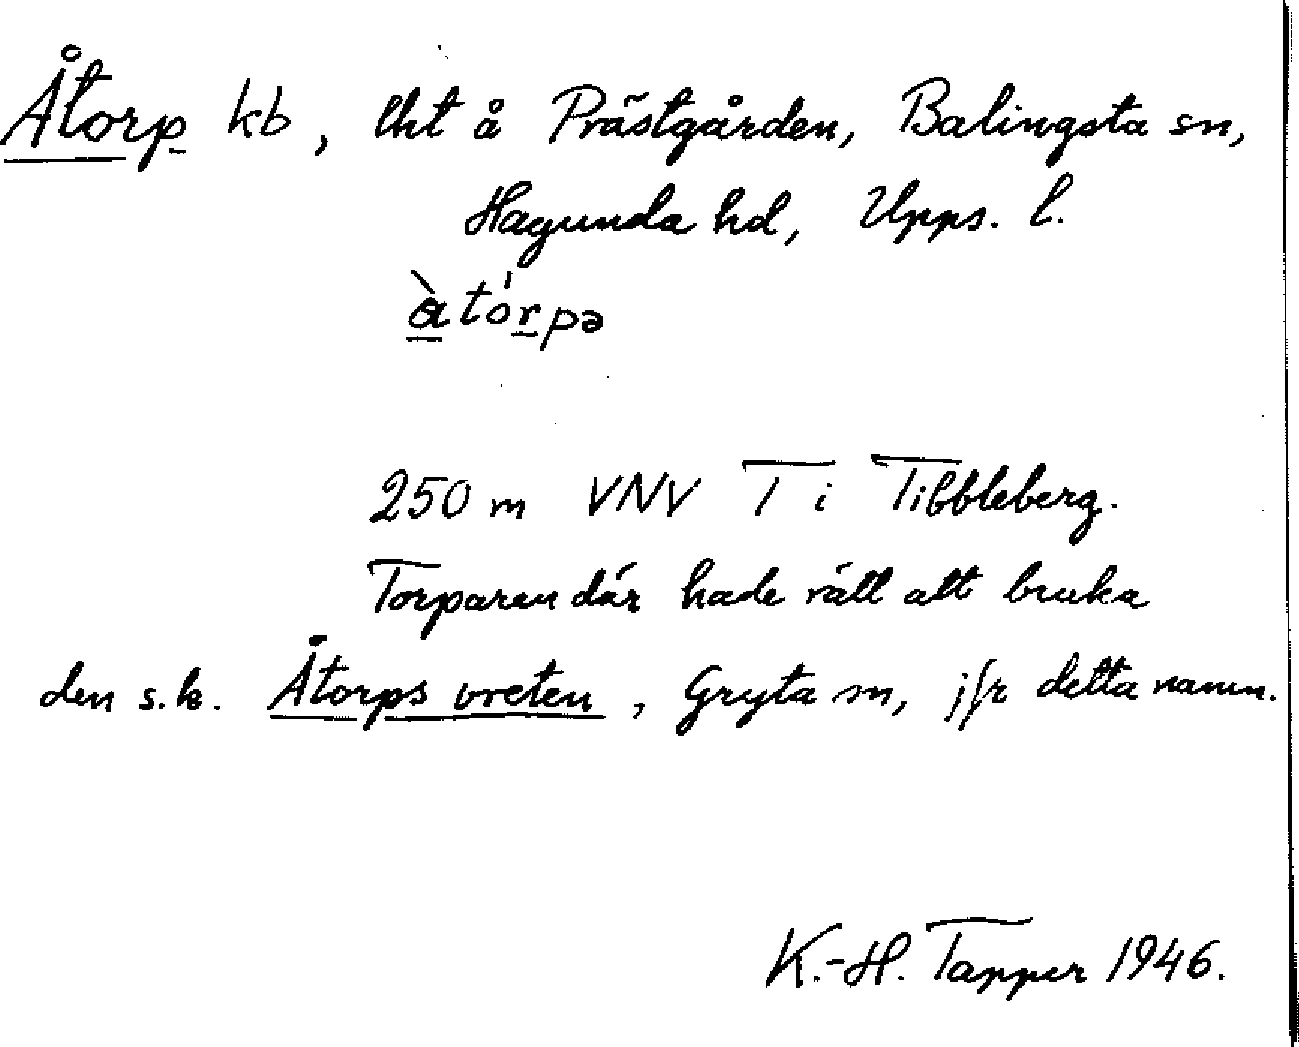 Åtorp kb, lht å Prästgården, Balingsta sn,
Hagunda hd, Upps. l.
àtórpə
250 m VNV T i Tibbleberg.
Torparen där hade rätt att bruka
den s.k. Åtorps vreten, Gryta sn, jfr detta namn.
K.-H. Tapper 1946.